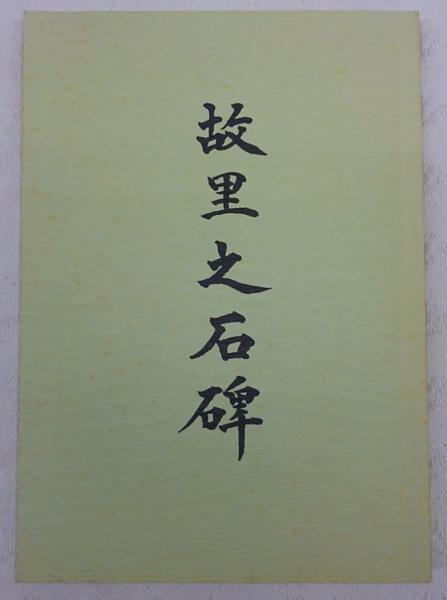 故里之石碑